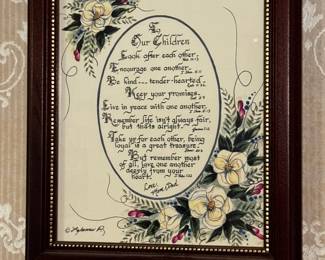 To
Our Children
Look after each other.
Encourage one another.
Be kind... tender-hearted.
Keep your promises.
Live in peace with one another.
Remember life isn't always fair,
but that's alright.
Take up for each other, being
loyal is a great treasure.
But remember most
of all, love one another
deeply from your
heart.
Love,
Mom & Dad